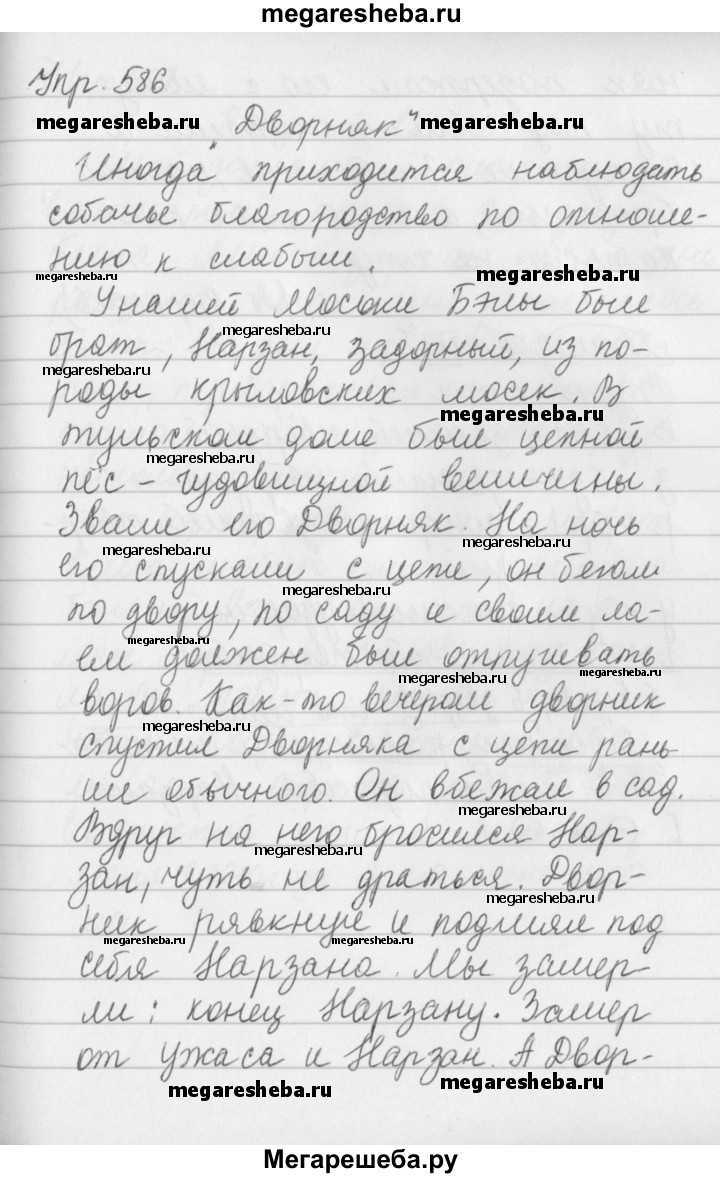 megaresheba.ru
Упр. 586
megaresheba.ru „Дворняк" megaresheba.ru
Иногда приходится наблюдать
собачье благородство по отноше-
нию к слабым.
megaresheba.ru megaresheba.ru
У нашей Моськи Бэлы был
megaresheba.ru
брат, Нарзан, задорный, из по-
megaresheba.ru
роды крыловских мосек. В
megaresheba.ru
тульском доме был цепной
megaresheba.ru
пёс - чудовищной величины.
Звали его Дворняк. На ночь
megaresheba.ru megaresheba.ru
его спускали с цепи, он бегал
megaresheba.ru
по двору, по саду и своим ла-
megaresheba.ru
ем должен был отпугивать
megaresheba.ru
воров. Как-то вечером дворник
megaresheba.ru
спустил Дворняка с цепи рань
ше обычного. Он вбежал в сад.
megaresheba.ru
Вдруг на него бросился Нар-
megaresheba.ru
зан, чуть не драться. Двор-
megaresheba.ru
ник рявкнул и подмял под
megaresheba.ru megaresheba.ru
себя Нарзана. Мы замер-
ли: конец Нарзану. Замер
от ужаса и Нарзан. А Двор-
megaresheba.ru megaresheba.ru
Мегарешеба.ру